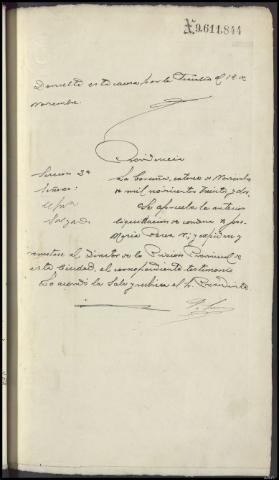 N.9.611.844
Devuelta esta causa por la Fiscalía el 12 de
Noviembre.
Providencia
Seccion 2ª
Señores
Salgado
La Coruña, catorce de Noviembre
de mil novecientos treinta y dos.
Se aprueba la anterior
liquidacion de condena de José
Maria Perez y expidase y
remitase al Director de la Prision Provincial de
esta Ciudad, el correspondiente testimonio
Lo acordó la Sala y rubrica el Sr. Presidente